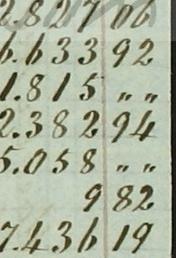 2.827 06
6.633 92
1.815 „ „
2.382 94
5.058 „ „
9 82
7.436 19